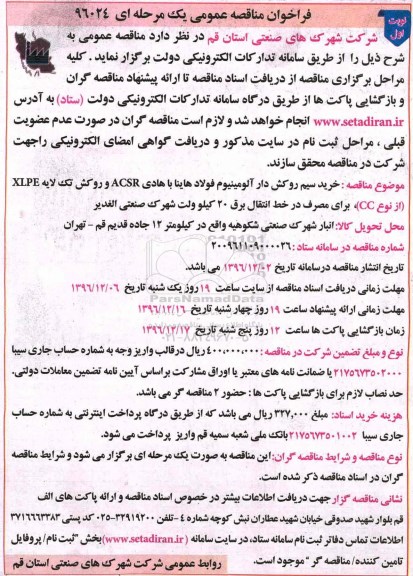 نوبت اول
فراخوان مناقصه عمومی یک مرحله ای ۹۶۰۲۴
شرکت شهرک های صنعتی استان قم در نظر دارد مناقصه عمومی به
شرح ذیل را از طریق سامانه تدارکات الکترونیکی دولت برگزار نماید . کلیه
مراحل برگزاری مناقصه از دریافت اسناد مناقصه تا ارائه پیشنهاد مناقصه گران
و بازگشایی پاکت ها از طریق درگاه سامانه تدارکات الکترونیکی دولت (ستاد) به آدرس
www.setadiran.ir انجام خواهد شد و لازم است مناقصه گران در صورت عدم عضویت
قبلی ، مراحل ثبت نام در سایت مذکور و دریافت گواهی امضای الکترونیکی راجهت
شرکت در مناقصه محقق سازند.
موضوع مناقصه : خرید سیم روکش دار آلومینیوم فولاد هاینا با هادی ACSR و روکش تک لایه XLPE
(از نوع CC)، برای مصرف در خط انتقال برق ۲۰ کیلو ولت شهرک صنعتی الغدیر
محل تحویل کالا: انبار شهرک صنعتی شکوهیه واقع در کیلومتر ۱۲ جاده قدیم قم - تهران
شماره مناقصه در سامانه ستاد : ۲۰۰۹۶۱۱۰۹۰۰۰۰۲۶
تاریخ انتشار مناقصه درسامانه تاریخ ۱۳۹۶/۱۲/۰۲ می باشد.
مهلت زمانی دریافت اسناد مناقصه از سایت ساعت ۱۹ روز یک شنبه تاریخ ۱۳۹۶/۱۲/۰۶
مهلت زمانی ارائه پیشنهاد ساعت ۱۹ روز چهار شنبه تاریخ ۱۳۹۶/۱۲/۱۶
زمان بازگشایی پاکت ها ساعت ۱۲ روز پنج شنبه تاریخ ۱۳۹۶/۱۲/۱۷
نوع و مبلغ تضمین شرکت در مناقصه : ۴۰۰,۰۰۰,۰۰۰ ریال در قالب واریز وجه به شماره حساب جاری سیبا
۲۱۷۵۶۷۳۵۰۲۰۰۰ یا ضمانت نامه های معتبر یا اوراق مشارکت براساس آیین نامه تضمین معاملات دولتی.
حد نصاب لازم برای بازگشایی پاکت ها : حضور ۲ مناقصه گر می باشد.
هزینه خرید اسناد: مبلغ ۳۲۷,۰۰۰ ریال می باشد که از طریق درگاه پرداخت اینترنتی به شماره حساب
جاری سیبا ۲۱۷۵۶۷۳۵۰۱۰۰۲ بانک ملی شعبه سمیه قم واریز پرداخت می شود.
نوع مناقصه و شرایط مناقصه گران: این مناقصه به صورت یک مرحله ای برگزار می شود و شرایط مناقصه
گران در اسناد مناقصه ذکر شده است.
نشانی مناقصه گزار جهت دریافت اطلاعات بیشتر در خصوص اسناد مناقصه و ارائه پاکت های الف
قم بلوار شهید صدوقی خیابان شهید عطاران نبش کوچه شماره ۴ -تلفن ۳۲۹۱۹۲۰۰-۰۲۵ کد پستی ۳۷۱۶۶۶۳۳۸۳
اطلاعات تماس دفاتر ثبت نام سامانه ستاد، در سایت سامانه (www.setadiran.ir)بخش "ثبت نام/ پروفایل
تامین کننده/ مناقصه گر" موجود است.
روابط عمومی شرکت شهرک های صنعتی استان قم